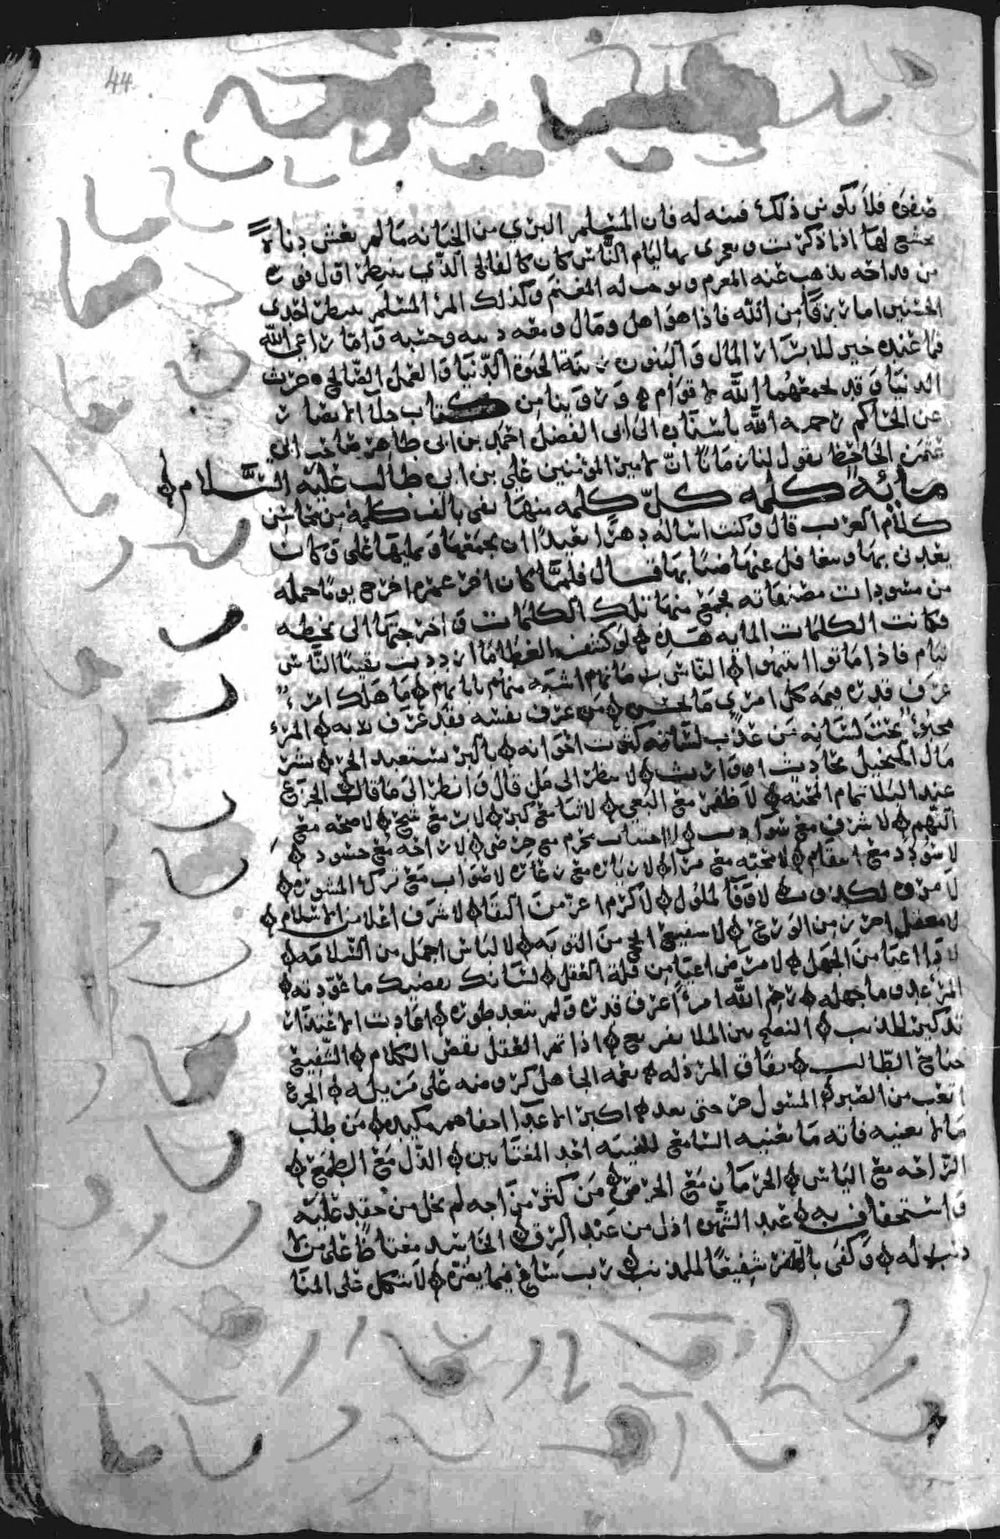 44
صفوة فلا يكونن ذلك فتنة له فان المرء المسلم البري من الخيانة ما لم يغش دناة
يخشع لها اذا ذكرت ويغرى بها ليام الناس كان كالفالج الذي ينتظر اول فوزة
من قداحه يذهب عنه المغرم ويوجب له المغنم وكذلك المرء المسلم ينتظر احدى
الحسنيين اما رزقا من الله فاذا هو اهل ومال ومعه دينه وحسبه واما داعي الله
فما عنده خير للابرار المال والبنون زينة الحيوة الدنيا والعمل الصالح حرث
الدنيا وقد يجمعهما الله لاقوام وروينا من كتاب جلاء الابصار
عن الحاكم رحمه الله باسناده الى ابي الفضل احمد بن ابي طاهر صاحب ابي
عثمان الجاحظ يقول لنا زمانا ان لامير المؤمنين علي بن ابي طالب عليه السلام
مائة كلمة كل كلمة منها تفي بالف كلمة من محاسن
كلام العرب قال وكنت اساله دهرا بعيدا ان يجمعها ويمليها علي وكان
يعدني بها ويتغافل عنها ضنا بها قال فلما كان اخر عمره اخرج يوما جملة
من مسودات مصنفاته فجمع منها تلك الكلمات واخرجها الي بخطه
فكانت الكلمات المايه هذه لو كشف الغطا ما ازددت يقينا الناس
نيام فاذا ماتوا انتبهوا الناس بزمانهم اشبه منهم بابايهم ما هلك امرء
عرف قدره قيمة كل امرئ ما يحسن من عرف نفسه فقد عرف ربه المرء
مخبوء تحت لسانه من عذب لسانه كثرت اخوانه بالبر يستعبد الحر بشر
مال البخيل بحادث او وارث لا تنظر الى من قال وانظر الى ما قال الجزع
عند البلا تمام المحنة لا ظفر مع البغي لا ثنا مع كبر لا بر مع شح لا صحة مع
النهم لا شرف مع سوء ادب لا اجتناب محرم مع حرص لا راحة مع حسود
لا سودد مع انتقام لا محبة مع مراء لا زيارة مع زعارة لا صواب مع ترك المشورة
لا مروة لكذوب لا وفا لملول لا كرم اعز من التقا لا شرف اعلا من الاسلام
لا معقل احرز من الورع لا شفيع انجح من التوبة لا لباس اجمل من السلامة
لا داء اعيا من الجهل لا مرض اعيا من قلة العقل لسانك يقتضيك ما عودته
المرء عدو ما جهله رحم الله امرءا عرف قدره ولم يتعد طوره اعادت الاعتذار
تذكير للذنب النصح بين الملا تقريع اذا تم العقل نقص الكلام الشفيع
جناح الطالب نفاق المرء ذله نعمة الجاهل كروضة على مزبلة الجزع
اتعب من الصبر المسول حر حتى يعد اكبر الاعداء اخفاهم مكيدة من طلب
ما لا يعنيه فاته ما يعنيه السامع للغيبة احد المغتابين الذل مع الطمع
الراحة مع الياس الحرمان مع الحرص من كثر مزاحه لم يخل من حقد عليه
واستخفاف به عبد الشهوة اذل من عبد الرق الحاسد مغتاظ على من لا
ذنب له وكفى بالظفر شفيعا للمذنب رب ساع فيما يضره لا تتكل على المنا